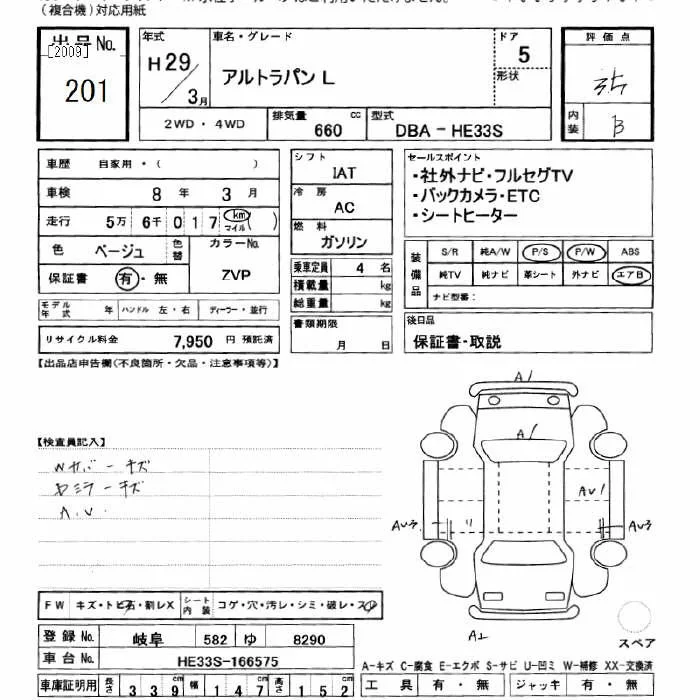 （複合機）対応用紙
出品No.
[2009]
201
年式
H29／3月
車名・グレード
アルトラパン L
ドア
5
形状
評価点
内装
B
2WD ・ 4WD
排気量
660 cc
型式
DBA - HE33S
車歴 自家用・( )
車検 8 年 3 月
走行 5万 6千 0 1 7 km マイル ( )
色 ベージュ 色替
カラーNo.
ZVP
保証書 有・無
モデル年式 年 ハンドル 左・右 ディーラー・並行
リサイクル料金 7,950 円 預託済
シフト
IAT
冷房
AC
燃料
ガソリン
乗車定員 4 名
積載量 kg
総重量 kg
書類期限
月 日
セールスポイント
・社外ナビ・フルセグTV
・バックカメラ・ETC
・シートヒーター
装備品
S/R 純A/W P/S P/W ABS
純TV 純ナビ 革シート 外ナビ エアB
ナビ型番：
後日品
保証書・取説
【出品店申告欄(不良箇所・欠品・注意事項等)】
【検査員記入】
Wサバーキズ
セミラーキズ
A.U.
A1
A1
AU1
AU3
AU3
A2
スペア
FW キズ・トビ石・割レX
シート内装 コゲ・穴・汚レ・シミ・破レ・スレ
登録No. 岐阜 582 ゆ 8290
車台No. HE33S-166575
車庫証明用 長さ 339cm 幅 147cm 高さ 152cm
A-キズ C-腐食 E-エクボ S-サビ U-凹ミ W-補修 XX-交換済
工具 有・無 ジャッキ 有・無